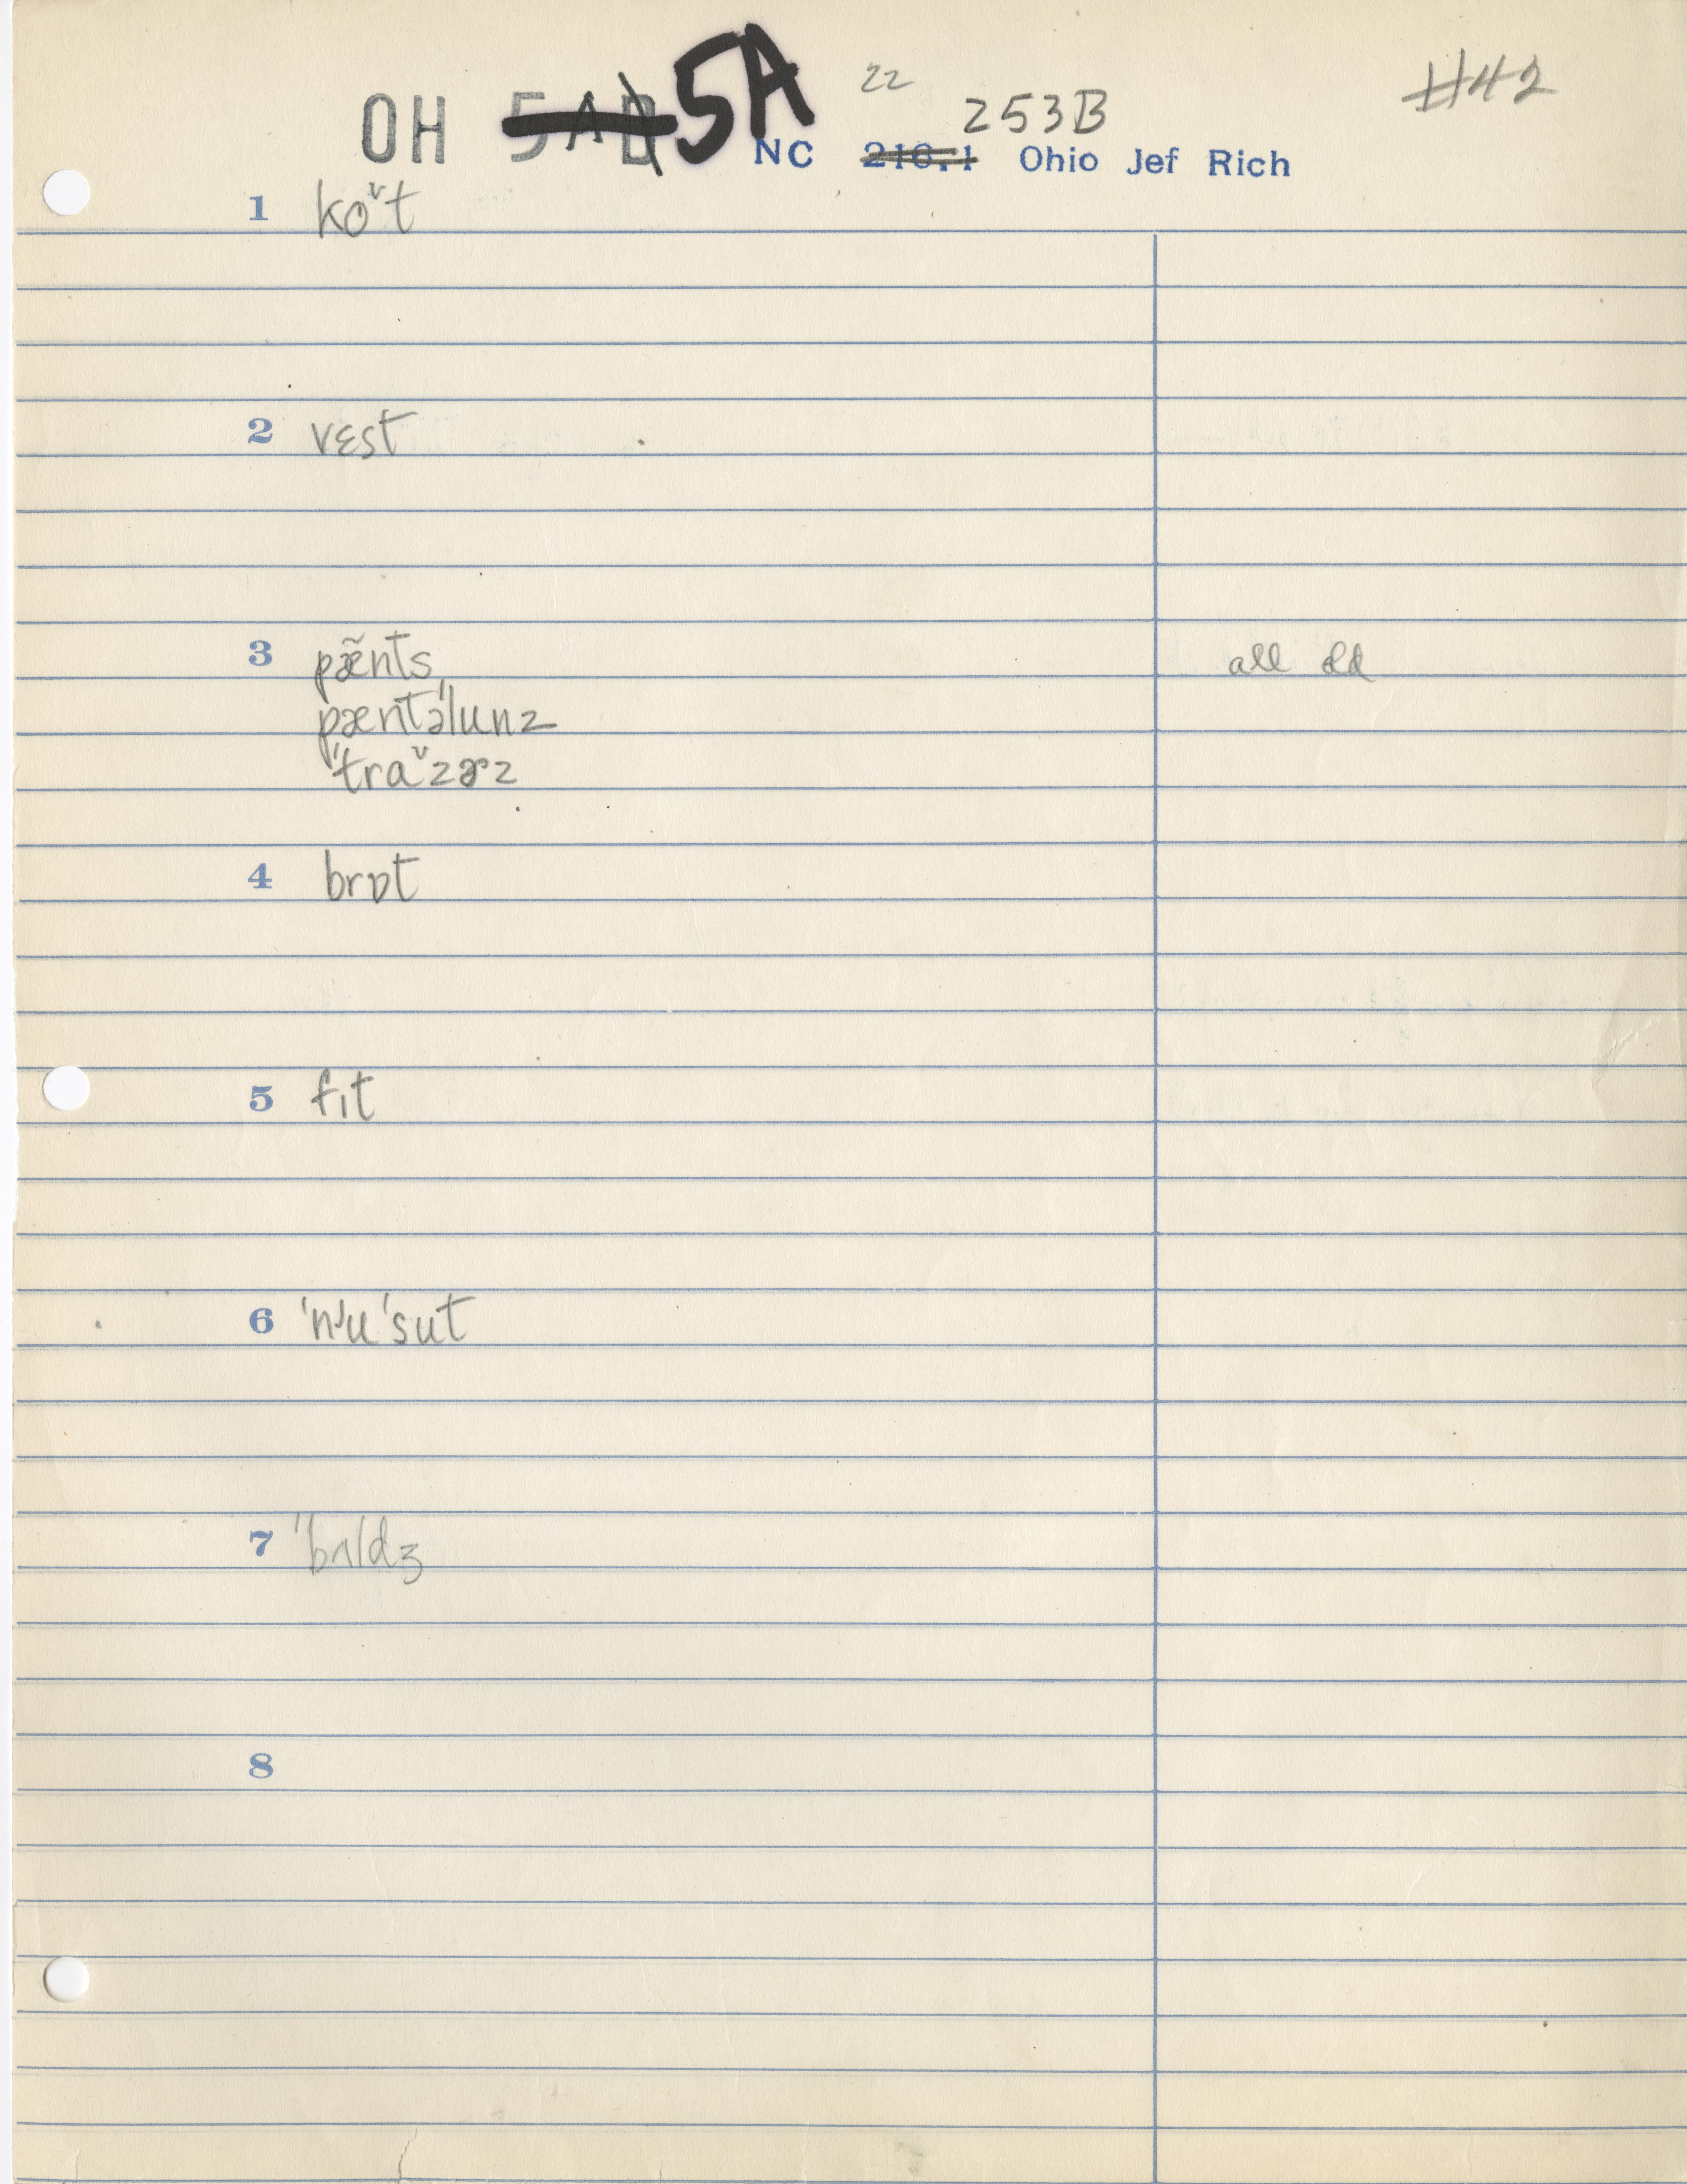 22 #42
OH 5A 253B
NC 216.1 Ohio Jef Rich
1 koᵛt
2 vɛst
3 pæ̃nts all old
pæntəˈlunz
ˈtraᵛzɚz
4 brɒt
5 fɪt
6 ˈnʲu ˈsut
7 ˈbʌldʒ
8